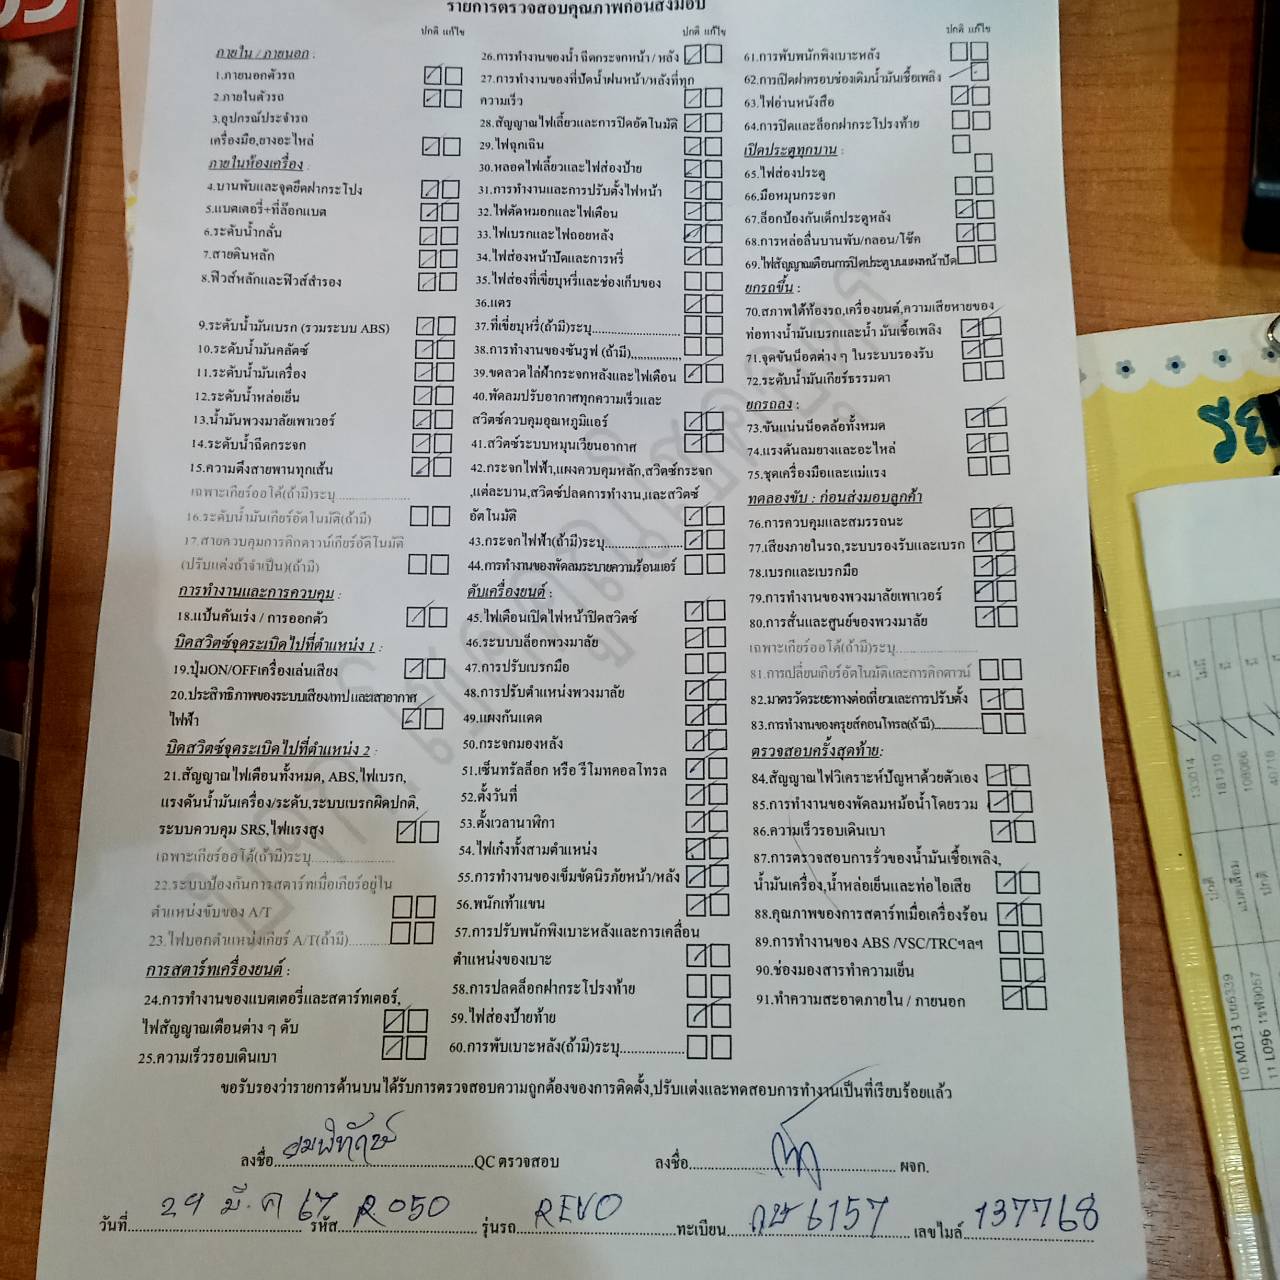 รายการตรวจสอบคุณภาพก่อนส่งมอบ
ปกติ แก้ไข
ภายใน / ภายนอก :
1.ภายนอกตัวรถ
2.ภายในตัวรถ
3.อุปกรณ์ประจำรถ
เครื่องมือ,ยางอะไหล่
ภายในห้องเครื่อง :
4.บานพับและจุดยึดฝากระโปง
5.แบตเตอรี่+ที่ล๊อกแบต
6.ระดับน้ำกลั่น
7.สายดินหลัก
8.ฟิวส์หลักและฟิวส์สำรอง
9.ระดับน้ำมันเบรก (รวมระบบ ABS)
10.ระดับน้ำมันคลัตซ์
11.ระดับน้ำมันเครื่อง
12.ระดับน้ำหล่อเย็น
13.น้ำมันพวงมาลัยเพาเวอร์
14.ระดับน้ำฉีดกระจก
15.ความตึงสายพานทุกเส้น
เฉพาะเกียร์ออโต้(ถ้ามี)ระบุ................
16.ระดับน้ำมันเกียร์อัตโนมัติ(ถ้ามี)
17.สายควบคุมการคิกดาวน์เกียร์อัตโนมัติ
(ปรับแต่งถ้าจำเป็น)(ถ้ามี)
การทำงานและการควบคุม :
18.แป้นคันเร่ง / การออกตัว
บิดสวิตซ์จุดระเบิดไปที่ตำแหน่ง 1 :
19.ปุ่มON/OFFเครื่องเล่นเสียง
20.ประสิทธิภาพของระบบเสียง/เทปและเสาอากาศ
ไฟฟ้า
บิดสวิตซ์จุดระเบิดไปที่ตำแหน่ง 2 :
21.สัญญาณไฟเตือนทั้งหมด, ABS,ไฟเบรก,
แรงดันน้ำมันเครื่อง/ระดับ,ระบบเบรกผิดปกติ,
ระบบควบคุม SRS,ไฟแรงสูง
เฉพาะเกียร์ออโต้(ถ้ามี)ระบุ................
22.ระบบป้องกันการสตาร์ทเมื่อเกียร์อยู่ใน
ตำแหน่งขับของ A/T
23.ไฟบอกตำแหน่งเกียร์ A/T(ถ้ามี)..........
การสตาร์ทเครื่องยนต์ :
24.การทำงานของแบตเตอรี่และสตาร์ทเตอร์,
ไฟสัญญาณเตือนต่าง ๆ ดับ
25.ความเร็วรอบเดินเบา
ปกติ แก้ไข
26.การทำงานของน้ำ ฉีดกระจกหน้า / หลัง
27.การทำงานของที่ปัดน้ำฝนหน้า/หลังที่ทุก
ความเร็ว
28.สัญญาณไฟเลี้ยวและการปิดอัตโนมัติ
29.ไฟฉุกเฉิน
30.หลอดไฟเลี้ยวและไฟส่องป้าย
31.การทำงานและการปรับตั้งไฟหน้า
32.ไฟตัดหมอกและไฟเตือน
33.ไฟเบรกและไฟถอยหลัง
34.ไฟส่องหน้าปัดและการหรี่
35.ไฟส่องที่เขี่ยบุหรี่และช่องเก็บของ
36.แตร
37.ที่เขี่ยบุหรี่(ถ้ามี)ระบุ....................
38.การทำงานของซันรูฟ (ถ้ามี)............
39.ขดลวดไล่ฝ้ากระจกหลังและไฟเตือน
40.พัดลมปรับอากาศทุกความเร็วและ
สวิตซ์ควบคุมอุณหภูมิแอร์
41.สวิตซ์ระบบหมุนเวียนอากาศ
42.กระจกไฟฟ้า,แผงควบคุมหลัก,สวิตซ์กระจก
,แต่ละบาน,สวิตซ์ปลดการทำงาน,และสวิตซ์
อัตโนมัติ
43.กระจกไฟฟ้า(ถ้ามี)ระบุ....................
44.การทำงานของพัดลมระบายความร้อนแอร์
ดับเครื่องยนต์ :
45.ไฟเตือนเปิดไฟหน้าปิดสวิตซ์
46.ระบบบล็อกพวงมาลัย
47.การปรับเบรกมือ
48.การปรับตำแหน่งพวงมาลัย
49.แผงกันแดด
50.กระจกมองหลัง
51.เซ็นทรัลล็อก หรือ รีโมทคอลโทรล
52.ตั้งวันที่
53.ตั้งเวลานาฬิกา
54.ไฟเก๋งทั้งสามตำแหน่ง
55.การทำงานของเข็มขัดนิรภัยหน้า/หลัง
56.พนักเท้าแขน
57.การปรับพนักพิงเบาะหลังและการเคลื่อน
ตำแหน่งของเบาะ
58.การปลดล็อกฝากระโปรงท้าย
59.ไฟส่องป้ายท้าย
60.การพับเบาะหลัง(ถ้ามี)ระบุ................
ปกติ แก้ไข
61.การพับพนักพิงเบาะหลัง
62.การเปิดฝาครอบช่องเติมน้ำมันเชื้อเพลิง
63.ไฟอ่านหนังสือ
64.การปิดและล็อกฝากระโปรงท้าย
เปิดประตูทุกบาน :
65.ไฟส่องประตู
66.มือหมุนกระจก
67.ล็อกป้องกันเด็กประตูหลัง
68.การหล่อลื่นบานพับ/กลอน/โช๊ค
69.ไฟสัญญาณเตือนการปิดประตูบนแผงหน้าปัด
ยกรถขึ้น :
70.สภาพใต้ท้องรถ,เครื่องยนต์,ความเสียหายของ
ท่อทางน้ำมันเบรกและน้ำ มันเชื้อเพลิง
71.จุดขันน็อตต่าง ๆ ในระบบรองรับ
72.ระดับน้ำมันเกียร์ธรรมดา
ยกรถลง :
73.ขันแน่นน็อตล้อทั้งหมด
74.แรงดันลมยางและอะไหล่
75.ชุดเครื่องมือและแม่แรง
ทดลองขับ : ก่อนส่งมอบลูกค้า
76.การควบคุมและสมรรถนะ
77.เสียงภายในรถ,ระบบรองรับและเบรก
78.เบรกและเบรกมือ
79.การทำงานของพวงมาลัยเพาเวอร์
80.การสั่นและศูนย์ของพวงมาลัย
เฉพาะเกียร์ออโต้(ถ้ามี)ระบุ................
81.การเปลี่ยนเกียร์อัตโนมัติและการคิกดาวน์
82.มาตรวัดระยะทางต่อเที่ยวและการปรับตั้ง
83.การทำงานของครุยส์คอนโทรล(ถ้ามี)............
ตรวจสอบครั้งสุดท้าย:
84.สัญญาณไฟวิเคราะห์ปัญหาด้วยตัวเอง
85.การทำงานของพัดลมหม้อน้ำโดยรวม
86.ความเร็วรอบเดินเบา
87.การตรวจสอบการรั่วของน้ำมันเชื้อเพลิง,
น้ำมันเครื่อง,น้ำหล่อเย็นและท่อไอเสีย
88.คุณภาพของการสตาร์ทเมื่อเครื่องร้อน
89.การทำงานของ ABS /VSC/TRCฯลฯ
90.ช่องมองสารทำความเย็น
91.ทำความสะอาดภายใน / ภายนอก
ขอรับรองว่ารายการด้านบนได้รับการตรวจสอบความถูกต้องของการติดตั้ง,ปรับแต่งและทดสอบการทำงานเป็นที่เรียบร้อยแล้ว
ลงชื่อ..........QC ตรวจสอบ ลงชื่อ.......... ผจก.
วันที่ 29 มี.ค 67 รหัส R050 รุ่นรถ REVO ทะเบียน 6157 เลขไมล์ 137768
133014
181310
108066
40718
ปกติ
แบตเสื่อม
ปกติ
10 M013 บย6339
11 L096 1ขฬ9057